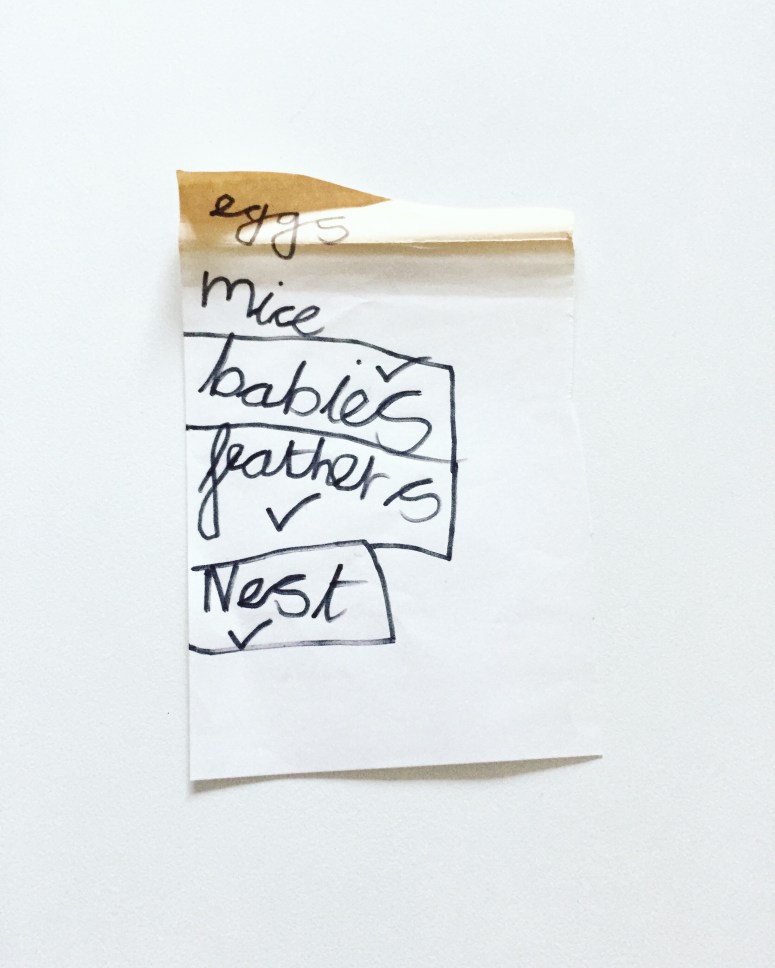 eggs
mice
babies ✓
feathers
✓
Nest
✓